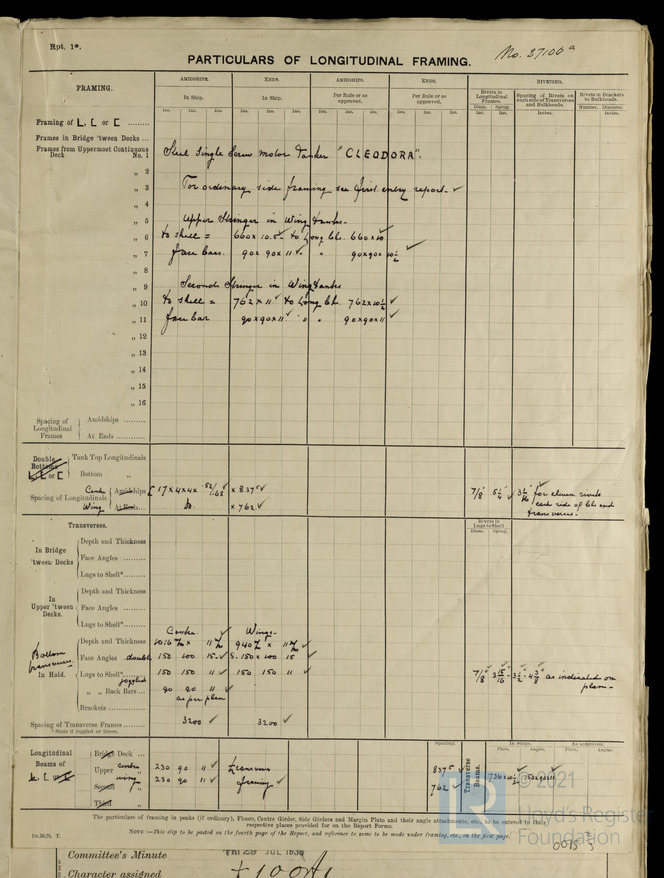 Rpt. 1*.
No. 27100 a
PARTICULARS OF LONGITUDINAL FRAMING.
FRAMING.
AMIDSHIPS. ENDS. AMIDSHIPS. ENDS. RIVETING.
In Ship. In Ship. Per Rule or as approved. Per Rule or as approved.
Rivets in Longitudinal Frames. Spacing of Rivets on each side of Transverses and Bulkheads. Rivets in Brackets to Bulkheads.
Diam. Spcng. Number. Diameter.
Framing of L, C or [ ........
Frames in Bridge 'tween Decks ...
Frames from Uppermost Continuous Deck No. 1
Steel Single Screw Motor Tanker "CLEODORA".
„ 2
„ 3 For ordinary side framing see first entry report. ✓
„ 4
„ 5 Upper Stringer in Wing tanks.
„ 6 to shell = 660 x 10.5 ✓ to Long bh. 660 x 10 ✓
„ 7 face bars. 90 x 90 x 11 ✓ „ 90 x 90 x 10½ ✓
„ 8
„ 9 Second Stringer in Wing tanks
„ 10 to shell = 762 x 11 ✓ to Long bh. 762 x 10½ ✓
„ 11 face bar 90 x 90 x 11 ✓ „ „ 90 x 90 x 11 ✓
„ 12
„ 13
„ 14
„ 15
„ 16
Spacing of Longitudinal Frames Amidships ........
At Ends ............
Double Bottoms L, C or [ Tank Top Longitudinals
Bottom „
Spacing of Longitudinals Centre Amidships [ 17 x 4 x 4 x .52/.62 ✓ x 837⁵ ✓ 7/8 5¼ ✓ for eleven rivets
Wing At Ends do. x 762 ✓ each side of bhs and transverses.
Transverses.
Rivets in Lugs to Shell
Diam. Spcng.
In Bridge 'tween Decks Depth and Thickness
Face Angles ........
Lugs to Shell* ........
In Upper 'tween Decks. Depth and Thickness
Face Angles ........
Lugs to Shell* ........
Centre. ✓ Wings.
Bottom transverses In Hold. Depth and Thickness 1016 x 11 ✓ 940 x 11 ✓
Face Angles double 150 100 15 ✓ S. 150 x 100 15 ✓
Lugs to Shell* joggled 150 150 11 ✓ 150 150 11 ✓ 7/8 3 15/16 - 3½ - 4⅜ as indicated on plan.
„ „ Back Bars ... 90 90 11 ✓
as per plan
Brackets ........
Spacing of Transverse Frames ........ 3200 ✓ 3200 ✓
* State if joggled or liners.
Spacing. In Ships. As approved.
Plate. Angles. Plate. Angles.
Longitudinal Beams of L, C or [ Bridge Deck ...
Upper centre „ 230 90 11 ✓ Transverse 837⁵ ✓ Transverse Beams.
Second wing „ 230 90 11 ✓ framing ✓ 762 ✓
Third „
The particulars of framing in peaks (if ordinary), Floors, Centre Girder, Side Girders and Margin Plate and their angle attachments, etc., to be entered in their respective places provided for on the Report Forms.
NOTE.—This slip to be pasted on the fourth page of the Report, and reference to same to be made under framing, etc., on the first page.
© 2021
Lloyd's Register
Foundation
Committee's Minute
Character assigned +100A1